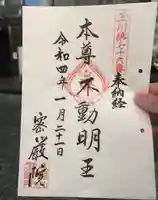 奉納経
本尊不動明王
令和四年一月二十一日
密嚴院